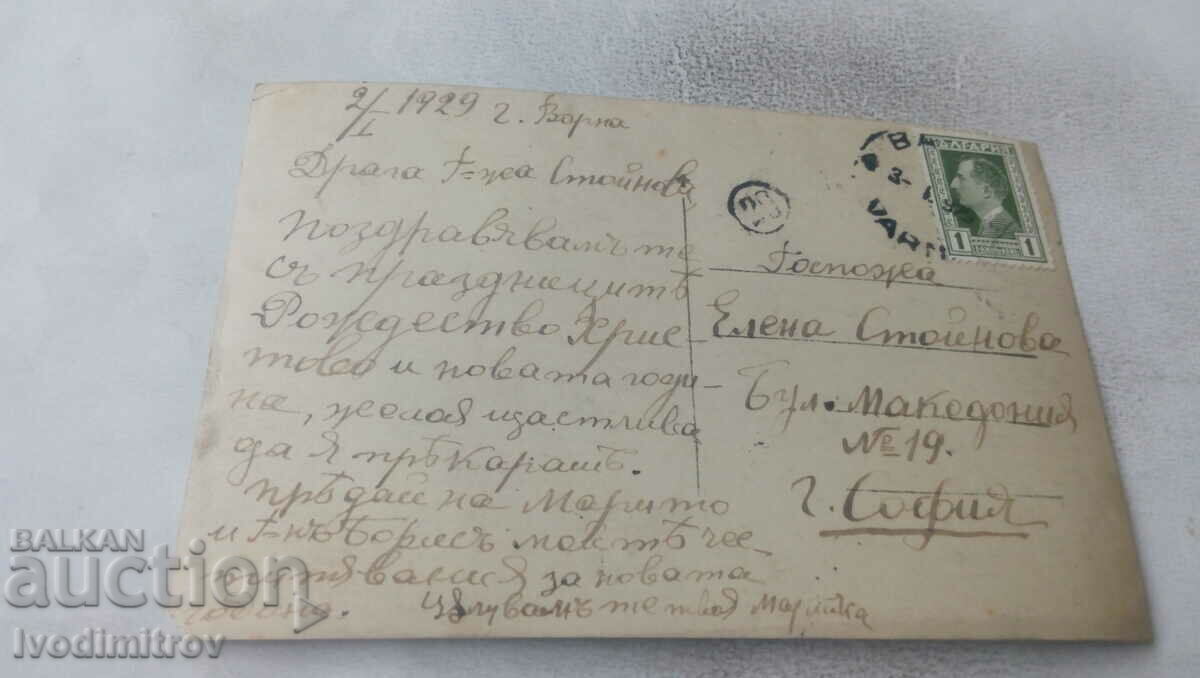 2/I 1929 г. Варна
Драга Г-жа Стойнова,
поздравявамъ те
съ праздницитѣ
Рождество Хрис
тово и новата годи-
на, желая щастлива
да я прѣкарашъ.
прѣдай на
и Г-нъ Борисъ моитѣ чес
титявания за новата
година. Цѣлувамъ те твоя Марийка
Госпожа
Елена Стойнова
Бул. Македония
№ 19.
г. София
БЪЛГАРИЯ
1
3-
VARN
BALKAN
auction
Ivodimitrov